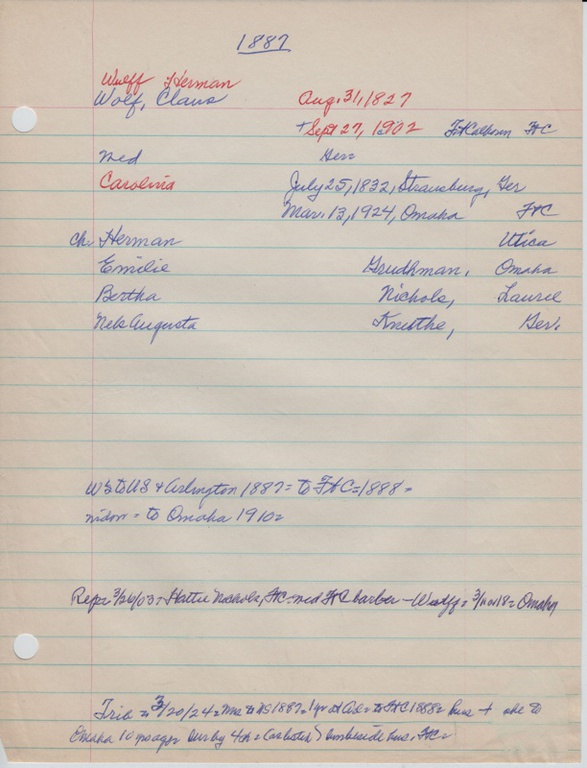 1887
Wulff Herman
Wolf, Claus Aug. 31, 1827
+ Sept 27, 1902 Ft Calhoun FtC
Med Ger=
Carolina July 25, 1832, Strausburg, Ger
Mar. 13, 1924, Omaha FtC
ch. Herman Utica
Emilie Grudhman, Omaha
Bertha Nichols, Laurel
Nels Augusta Knuthe, Ger.
W3 to US & Arlington 1887= to FtC=1888=
widow = to Omaha 1910=
Rep= 3/26/03= Hattie Nichols, FtC= med FtC barber - Wulff= = Omaha
Trib = 3/20/24= Mrs to US 1887= 1 yr at Arl= to FtC 1888= hus + she to
Omaha 10 yrs ago= Sur by 4 ch= beside hus, FtC=